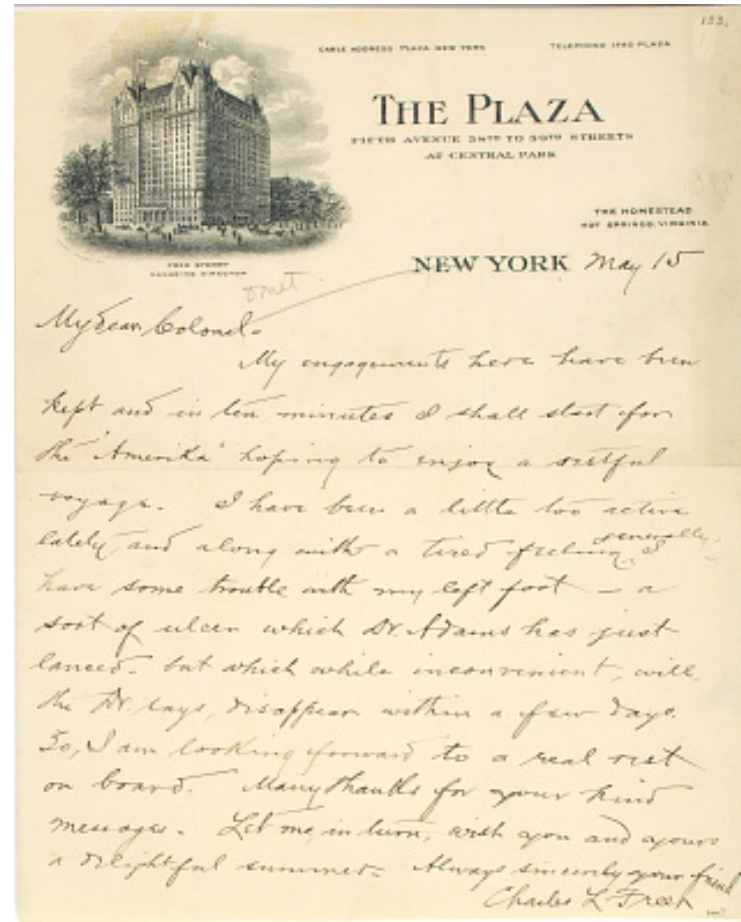 133.
CABLE ADDRESS: PLAZA NEW YORK
TELEPHONE PLAZA
THE PLAZA
FIFTH AVENUE 58TH TO 59TH STREETS
AT CENTRAL PARK
THE HOMESTEAD
HOT SPRINGS, VIRGINIA
FRED STERRY
MANAGING DIRECTOR
NEW YORK May 15
omit
My dear Colonel -
My engagements here have been
kept and in ten minutes I shall start for
the "Amerika" hoping to enjoy a restful
voyage. I have been a little too active
lately, and along with a tired feeling generally, I
have some trouble with my left foot - a
sort of ulcer which Dr. Adams has just
lanced - but which while inconvenient, will,
the Dr. says, disappear within a few days.
So, I am looking forward to a real rest
on board. Many thanks for your kind
messages. Let me, in turn, wish you and yours
a delightful summer - Always sincerely your friend
Charles L Freer